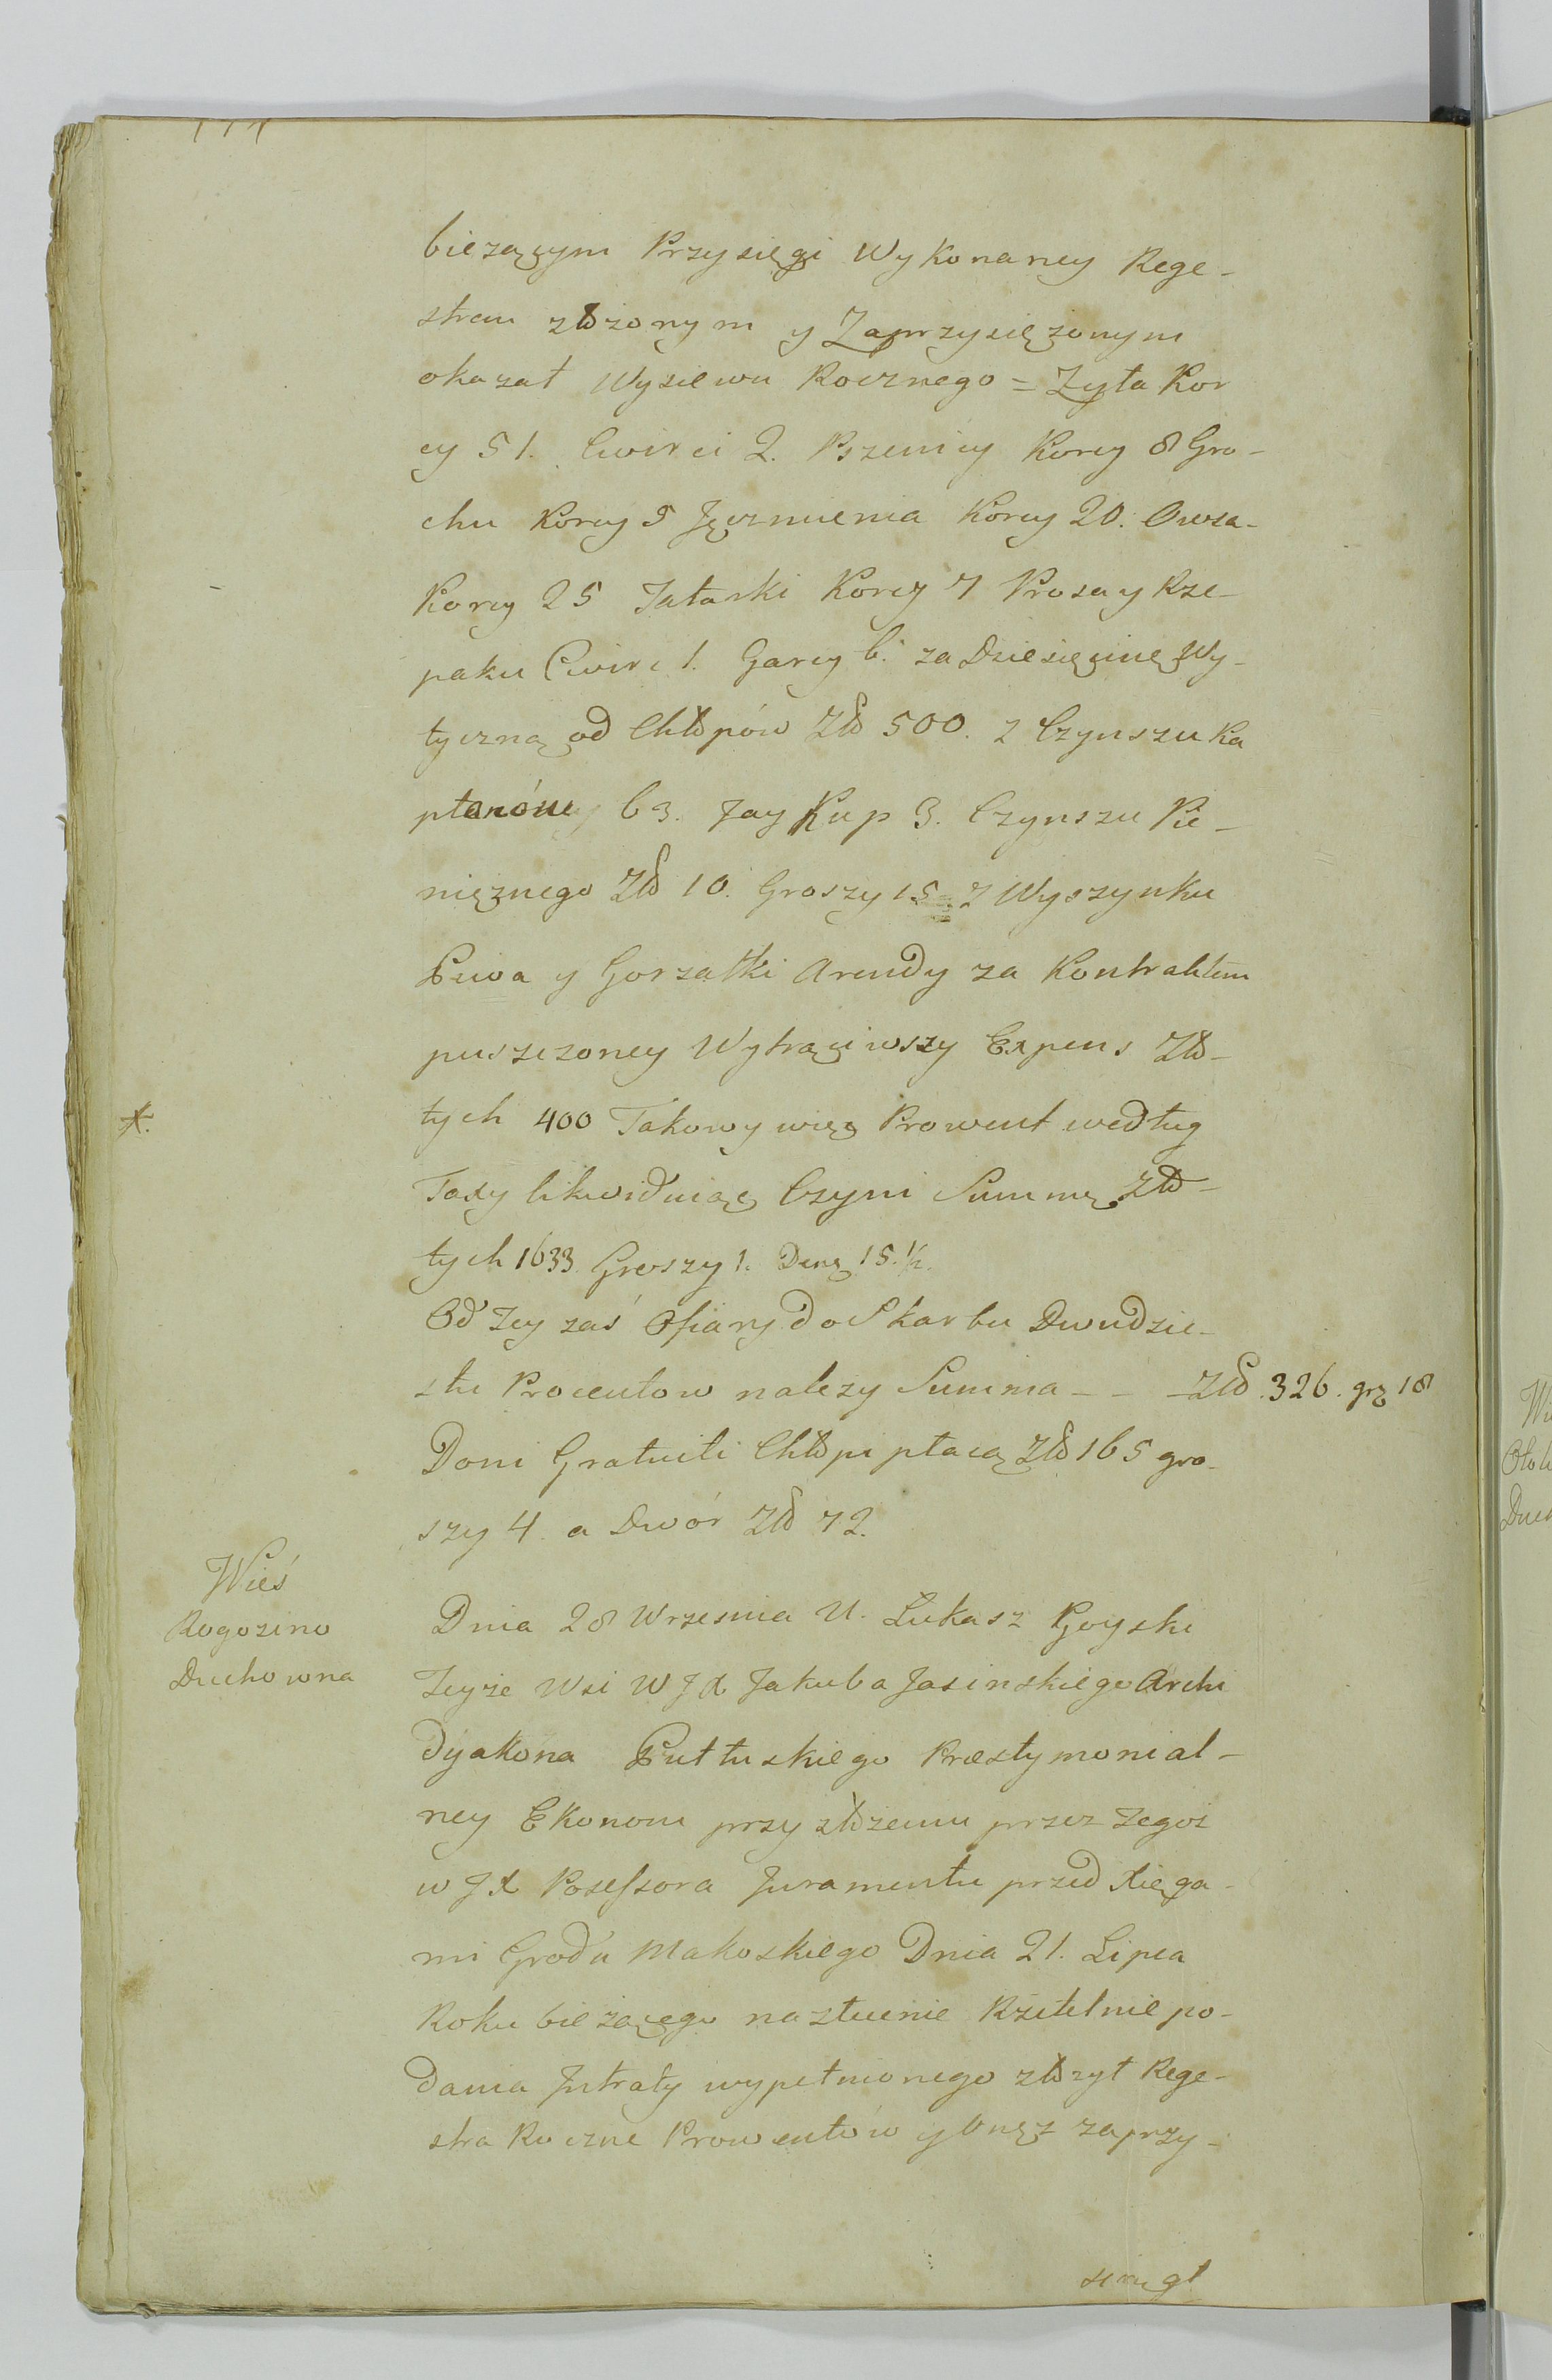 bieżącym Przysięgi Wykonaney Rege-
strem złożonym y Zaprzysiężonym
okazał Wysiewu Rocznego = Zyta Kor
cy 51. Cwirci 2. Pszenicy Korcy 8 Gro-
chu Korcy 5 Jęczmienia Korcy 20. Owsa-
Korcy 25 Tatarki Korcy 7 Prosa y Rze-
paku Cwirc 1. Garcy 6. za Dziesięcinę Wy-
tyczną od Chłopów Zło 500. z Czynszu Ka
płonów 63. Jay Kup 3. Czynszu Pie-
niężnego Zło 10. Groszy 15 z Wyszynku
Piwa y Gorzałki Arendy za Kontraktem
puszczoney Wytrąciwszy Expens Zło-
tych 400 Takowy więc Prowent według
Taxy likwiduiąc Czyni Summę Zło-
tych 1633. Groszy 1. Dena 15. 1/2.
Od Tey zaś Ofiary do Skarbu Dwudzie-
stu Procentow nalezy Summa - - - Zło. 326. grz 18
Doni Gratuiti Chłopi płacą Zło 165 gro-
szy 4. a Dwór Zło 72.
Wieś
Rogozino
Duchowna
Dnia 28 Wrzesnia U. Łukasz Goyski
Teyże Wsi W JX Jakuba Jasinskiego Archi
dyakona Pułtuskiego Præstymonial-
ney Ekonom przy złożeniu przez Tegoż
W JX Posessora Juramentu przed Xięga-
mi Grodu Makoskiego Dnia 21. Lipca
Roku bieżącego na ztwierdzenie Rzetelnie po-
dania Jntraty wypełnionego złożył Rege-
stra Roczne Prowentów y Onęż zaprzy-
siągł